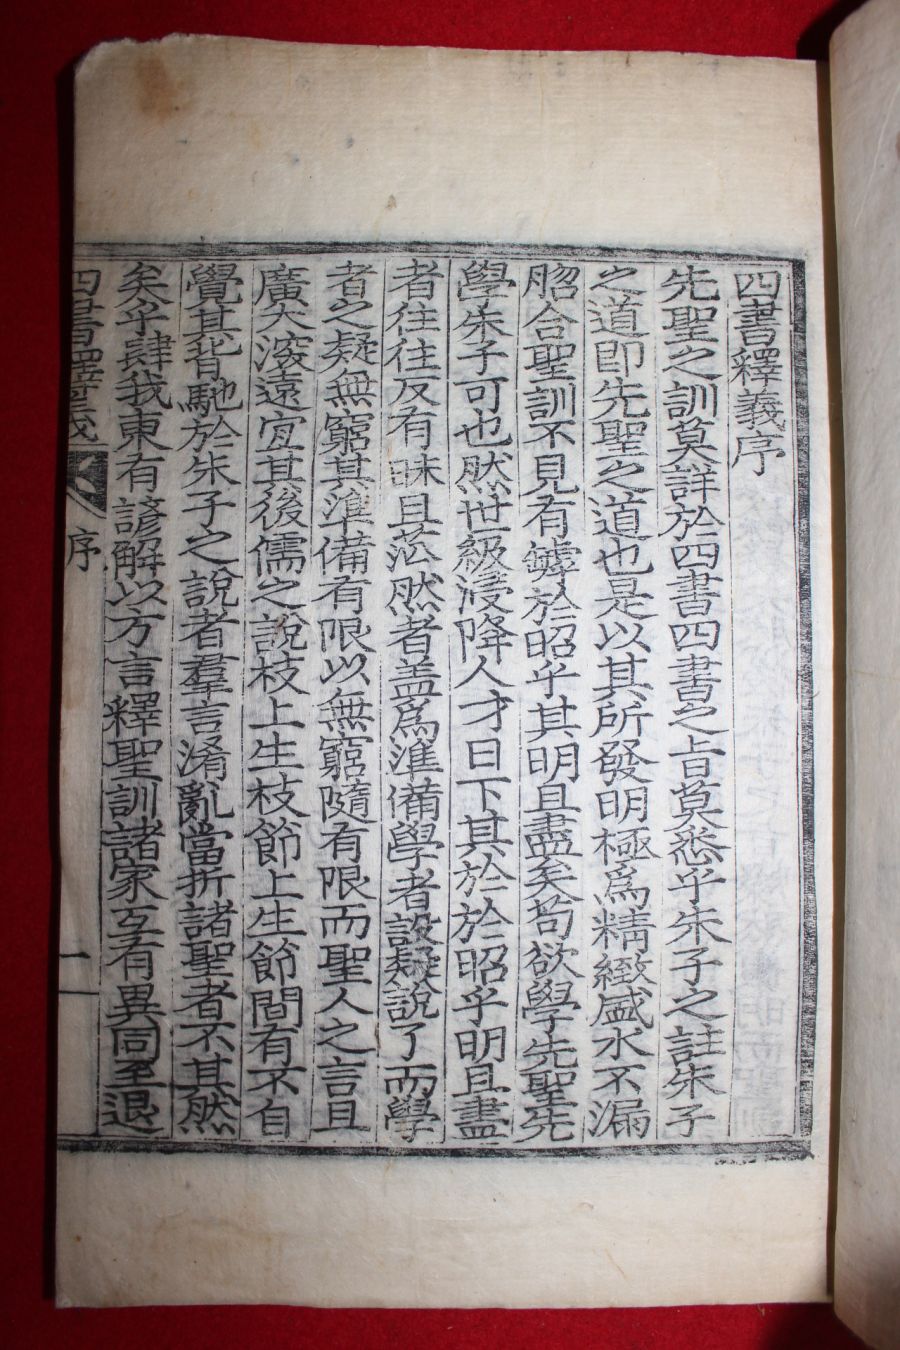 四書釋義序
先聖之訓莫詳於四書四書之旨莫悉乎朱子之註朱子
之道即先聖之道也是以其所發明極爲精緻盛水不漏
脗合聖訓不見有罅於昭乎其明且盡矣苟欲學先聖先
學朱子可也然世級浸降人才日下其於於昭乎明且盡
者往往反有昧且茫然者盖爲準備學者設疑說了而學
者之疑無窮其準備有限以無窮隨有限而聖人之言且
廣大深遠宜其後儒之說枝上生枝節上生節間有不自
覺其背馳於朱子之說者羣言淆亂當折諸聖者不其然
矣乎肆我東有諺解以方言釋聖訓諸家互有異同至退
四書釋義
序
一